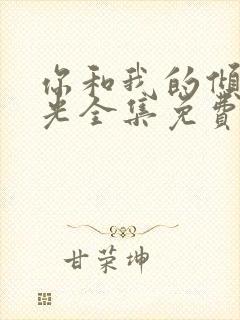 你和我的倾
光全集免費
甘荣坤